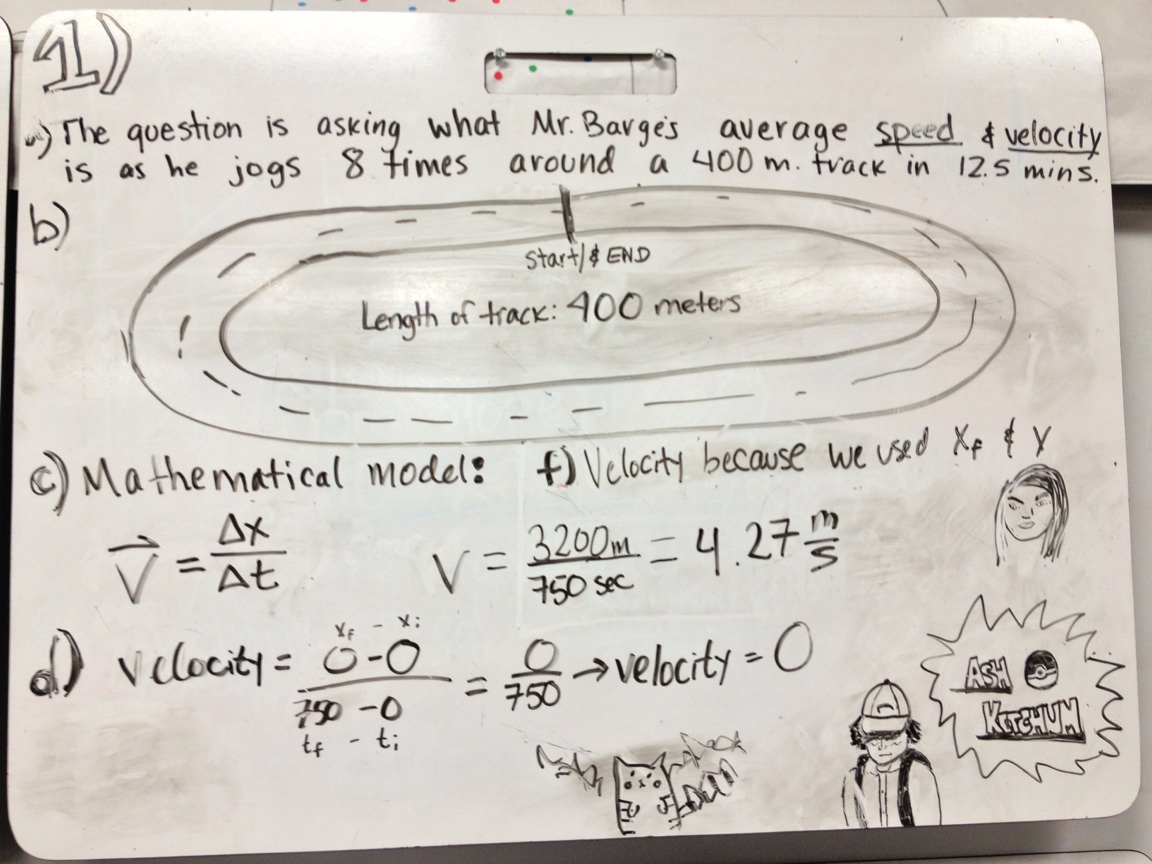 1)
a) The question is asking what Mr. Barge's average speed & velocity
is as he jogs 8 times around a 400 m. track in 12.5 mins.
b)
Start/& END
Length of track: 400 meters
c) Mathematical model:
f) Velocity because we used Xf &
V = Δx/Δt
V = 3200m/750 sec = 4.27 m/s
xf - xi
d) velocity = 0-0/750-0 = 0/750 → velocity = 0
tf - ti
ASH
KETCHUM